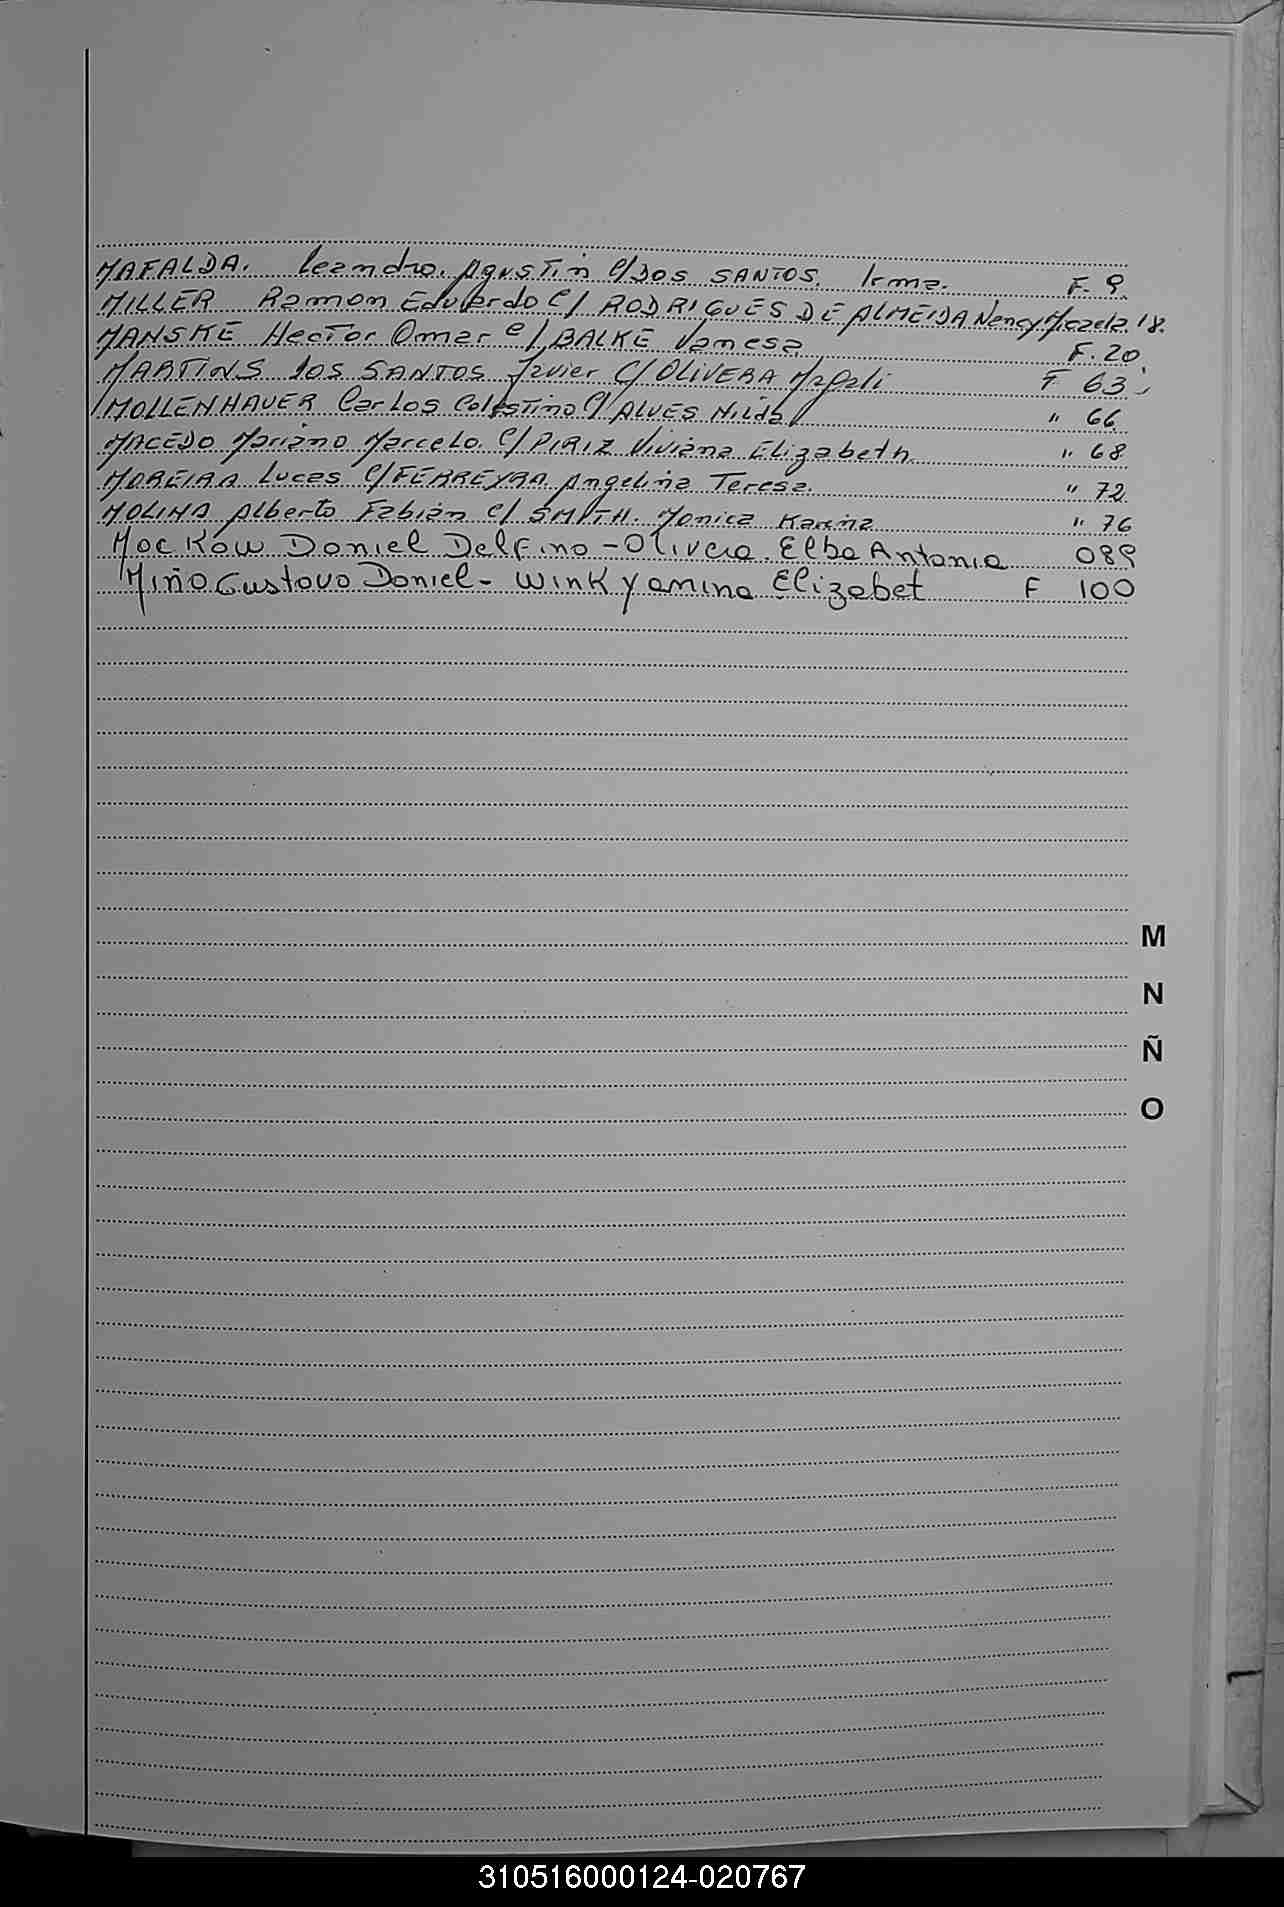 MAFALDA. Leandro. Agustin C/DOS SANTOS. Irma. F. 9.
MILLER Ramon Eduardo C/ RODRIGUES DE ALMEIDA Nancy Micaela. 18.
MANSKE Hector Omar C/ BALKE Vanesa F. 20
MARTINS DOS SANTOS Javier C/ OLIVERA Magali F 63
MOLLENHAUER Carlos Celestino C/ ALVES Hilda " 66
MACEDO Mariano Marcelo. C/ PIRIZ Viviana Elizabeth " 68
MOREIRA Lucas C/ FERREYRA Angelina Teresa. " 72
MOLINA Alberto Fabián C/ SMITH. Monica Karina " 76
Mockow Daniel Delfino - Olivera. Elba Antonia 089
Miño Gustavo Daniel - Wink Yamina Elizabet F 100
M
N
Ñ
O
310516000124-020767